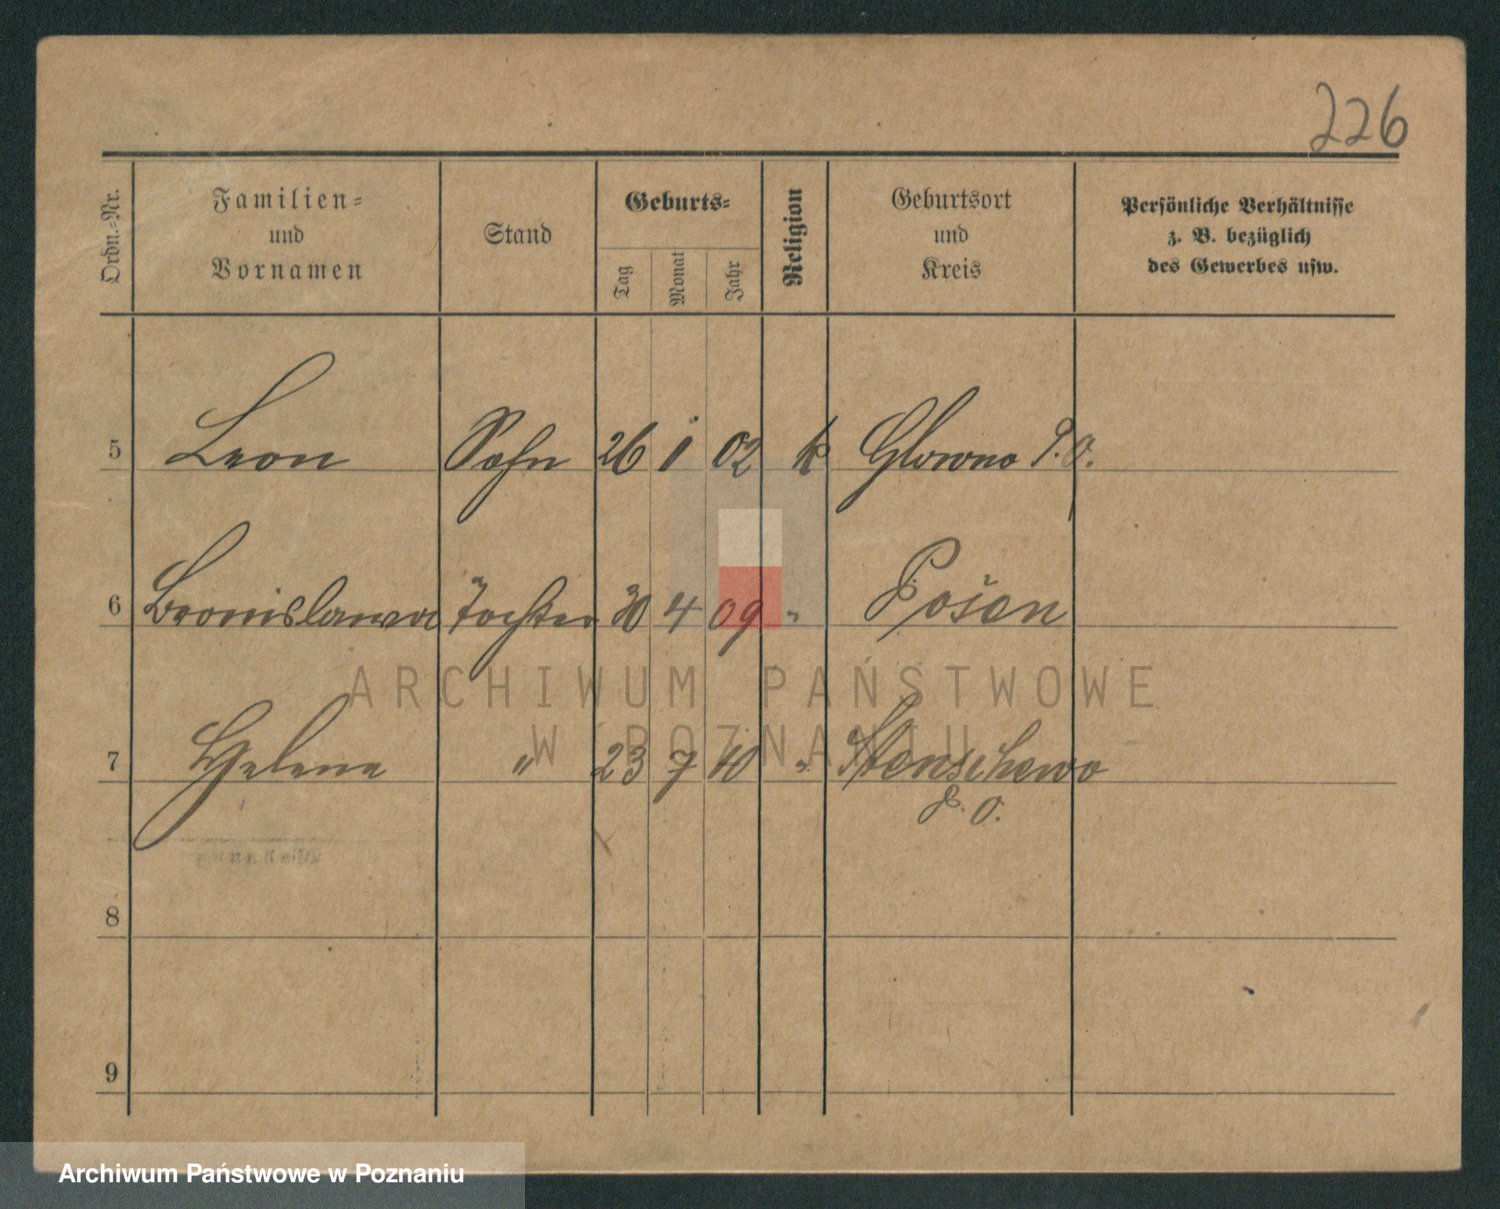 226
Ordn.-Nr.
Familien-
und
Vornamen
Stand
Geburts-
Tag
Monat
Jahr
Religion
Geburtsort
und
Kreis
Persönliche Verhältnisse
z. B. bezüglich
des Gewerbes usw.
5 Leon Sohn 26 1 02 k Glowno P.O.
6 Bronislawa Tochter 30 4 09 " Posen
7 Helene " 23 7 10 " Stenschewo
P. O.
8
9
ARCHIWUM PAŃSTWOWE
W POZNANIU
Archiwum Państwowe w Poznaniu